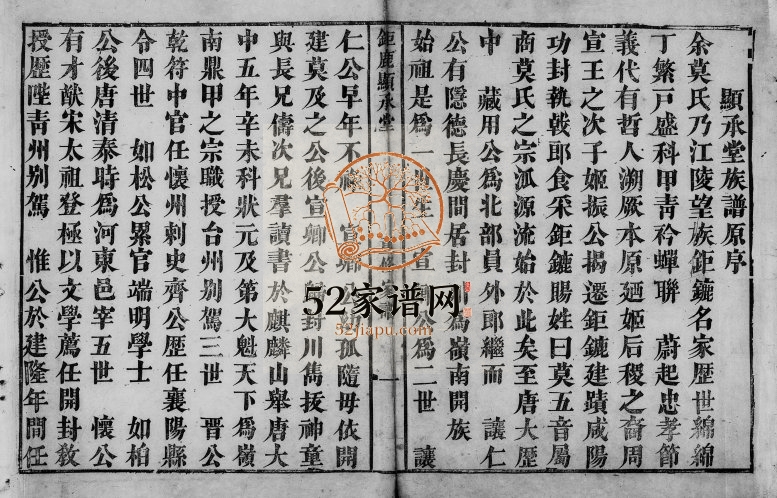 顯承堂族譜原序
余莫氏乃江陵望族鉅鏕名家歷世綿綿
丁繁戸盛科甲青衿蟬聯 蔚起忠孝節
義代有哲人溯厥本原廼姬后稷之裔周
宣王之次子姬振公揭遷鉅鏕建蹟咸陽
功封執戟郎食采鉅鏕賜姓曰莫五音屬
商莫氏之宗泒源流始於此矣至唐大歷
中 藏用公爲北部員外郎繼而 讓仁
公有隱德長慶間居封川爲嶺南開族
始祖是爲一世生 宣 公爲二世 讓
鉅鹿顯承堂
一
仁公早年不 宣卿公 孤隨毋依開
建莫及之公後宣卿公 封川雋拔神童
與長兄儔次兄羣讀書於麒麟山舉唐大
中五年辛未科狀元及第大魁天下爲嶺
南鼎甲之宗職授台州別駕三世 晋公
乾符中官任懷州刺史齊公歷任襄陽縣
令四世 如松公累官端明學士 如柏
公後唐清泰時爲河東邑宰五世 懷公
有才猷宋太祖登極以文學薦任開封教
授歷陞青州别駕 惟公於建隆年間任
52家谱网
52jiapu.com